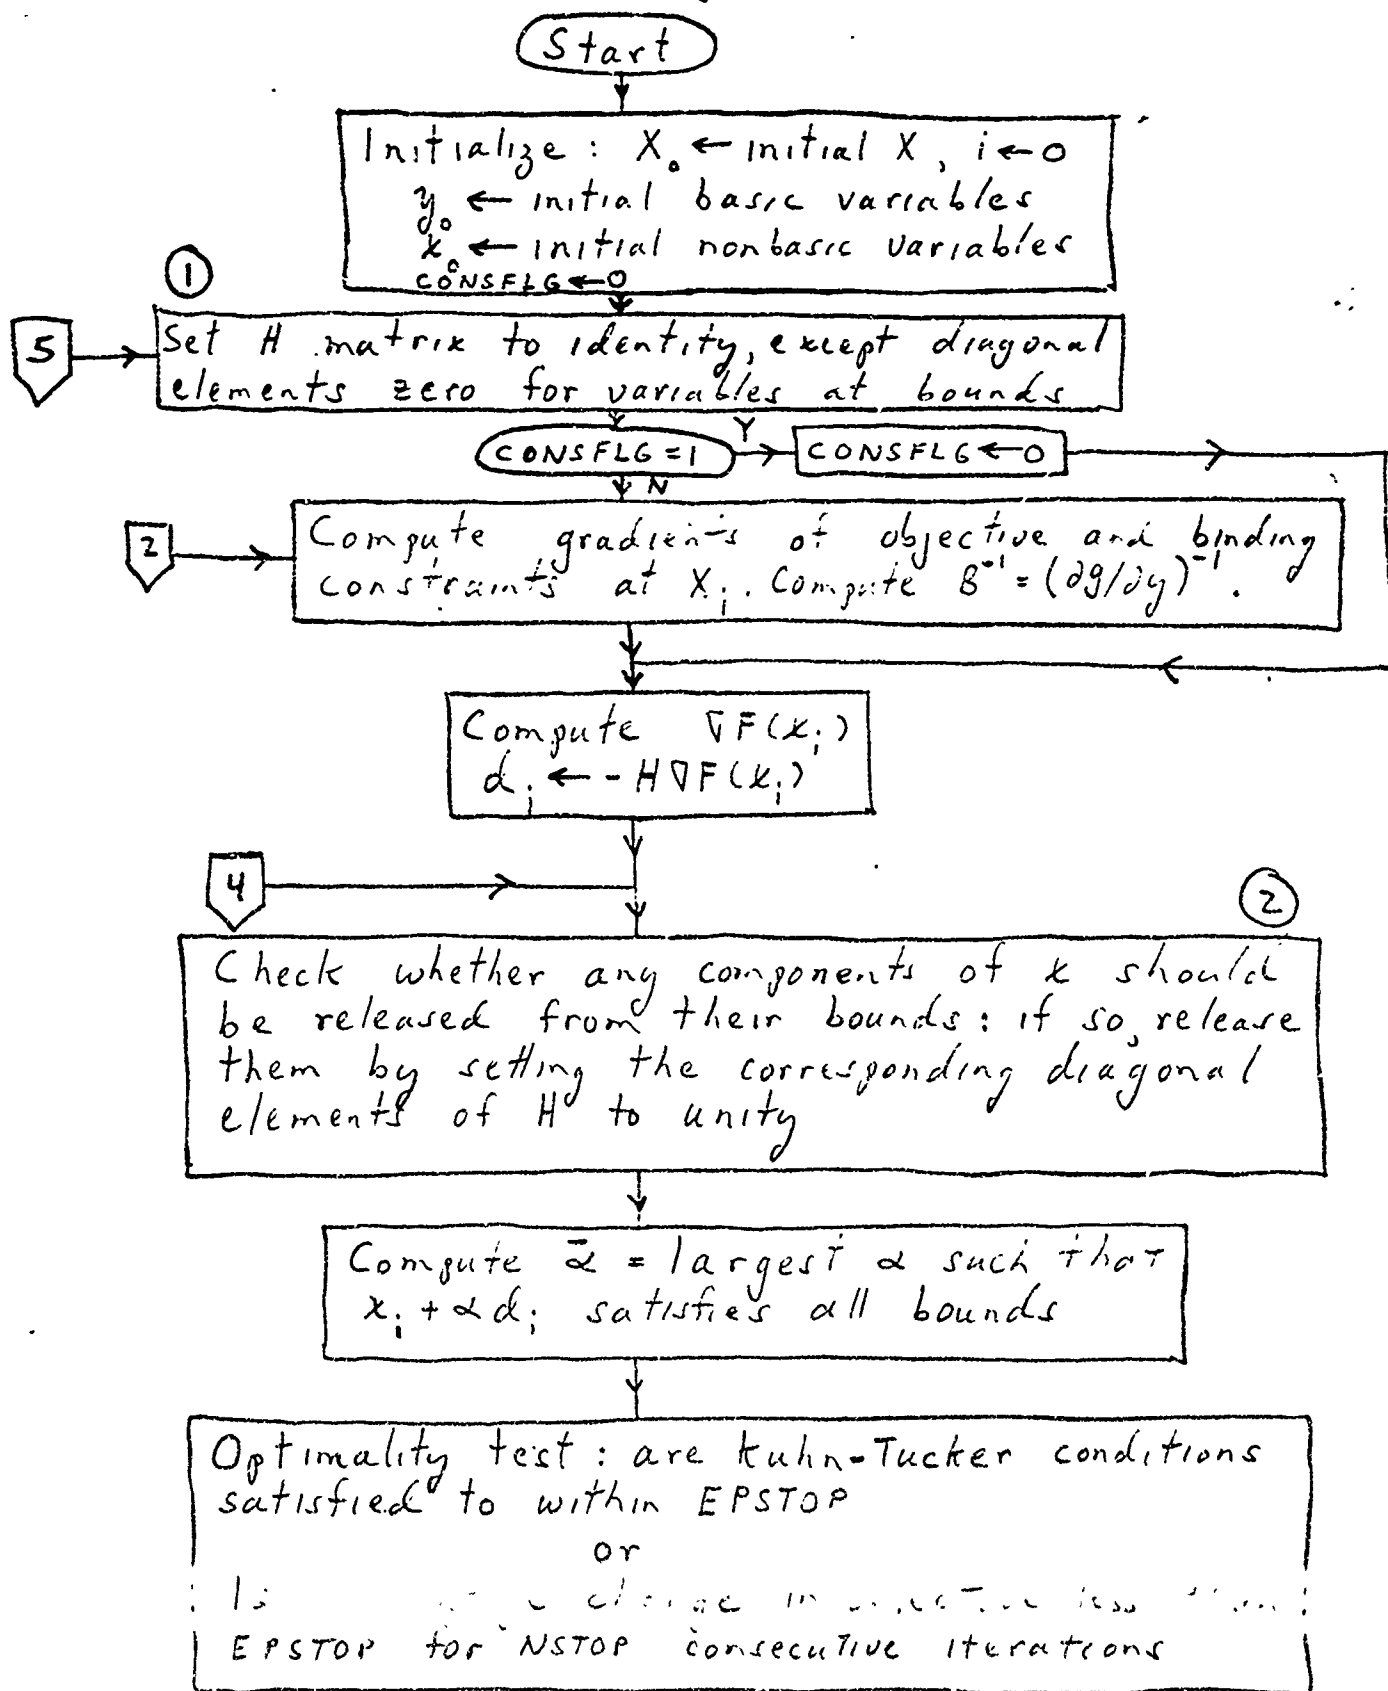 Start
Initialize : X₀ ← initial X, i ← 0
y₀ ← initial basic variables
x₀ ← initial nonbasic variables
CONSFLG ← 0
1
5
Set H matrix to identity, except diagonal
elements zero for variables at bounds
CONSFLG = 1
Y
CONSFLG ← 0
N
2
Compute gradients of objective and binding
constraints at Xᵢ. Compute B⁻¹ = (∂g/∂y)⁻¹.
Compute ∇F(xᵢ)
dᵢ ← -H∇F(xᵢ)
4
2
Check whether any components of x should
be released from their bounds: if so, release
them by setting the corresponding diagonal
elements of H to unity
Compute ᾱ = largest α such that
xᵢ + αdᵢ satisfies all bounds
Optimality test : are Kuhn-Tucker conditions
satisfied to within EPSTOP
or
Is change in less
EPSTOP for NSTOP consecutive iterations